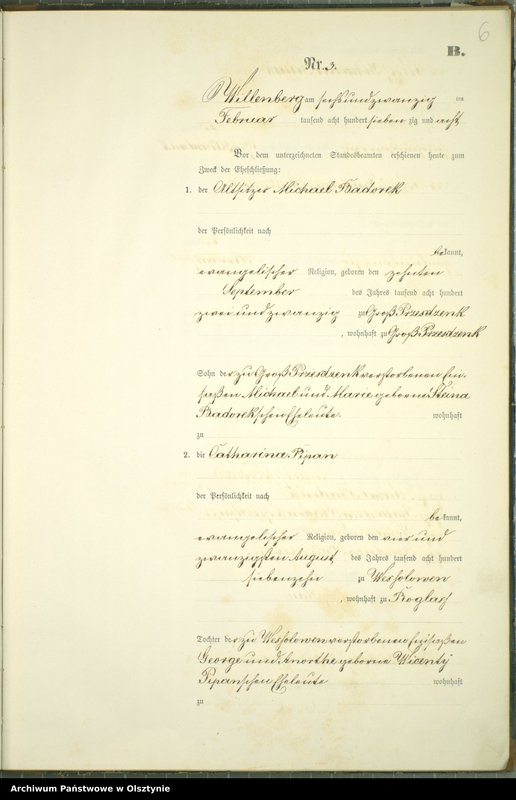 6
B.
Nr. 3.
Willenberg am sechsundzwanzig ten
Februar tausend acht hundert sieben zig und acht
Vor dem unterzeichneten Standesbeamten erschienen heute zum
Zweck der Eheschließung:
1. der Altsitzer Michael Badorek
der Persönlichkeit nach
bekannt,
evangelischer Religion, geboren den zehnten
September des Jahres tausend acht hundert
zwei und zwanzig zu Groß Przesdzenk
, wohnhaft zu Groß Przesdzenk
Sohn der zu Groß Przesdzenk verstorbenen Ein-
saßen Michael und Marie geborne Steina
Badorekschen Eheleute. wohnhaft
zu
2. die Catharina Pipan
der Persönlichkeit nach
bekannt,
evangelischer Religion, geboren den vier und
zwanzigsten August des Jahres tausend acht hundert
siebenzehn zu Wessolowen
, wohnhaft zu Roglass
Tochter der zu Wessolowen verstorbenen Einsaßen
George und Anorthe geborne Wicenty
Pipanschen Eheleute wohnhaft
zu
Archiwum Państwowe w Olsztynie